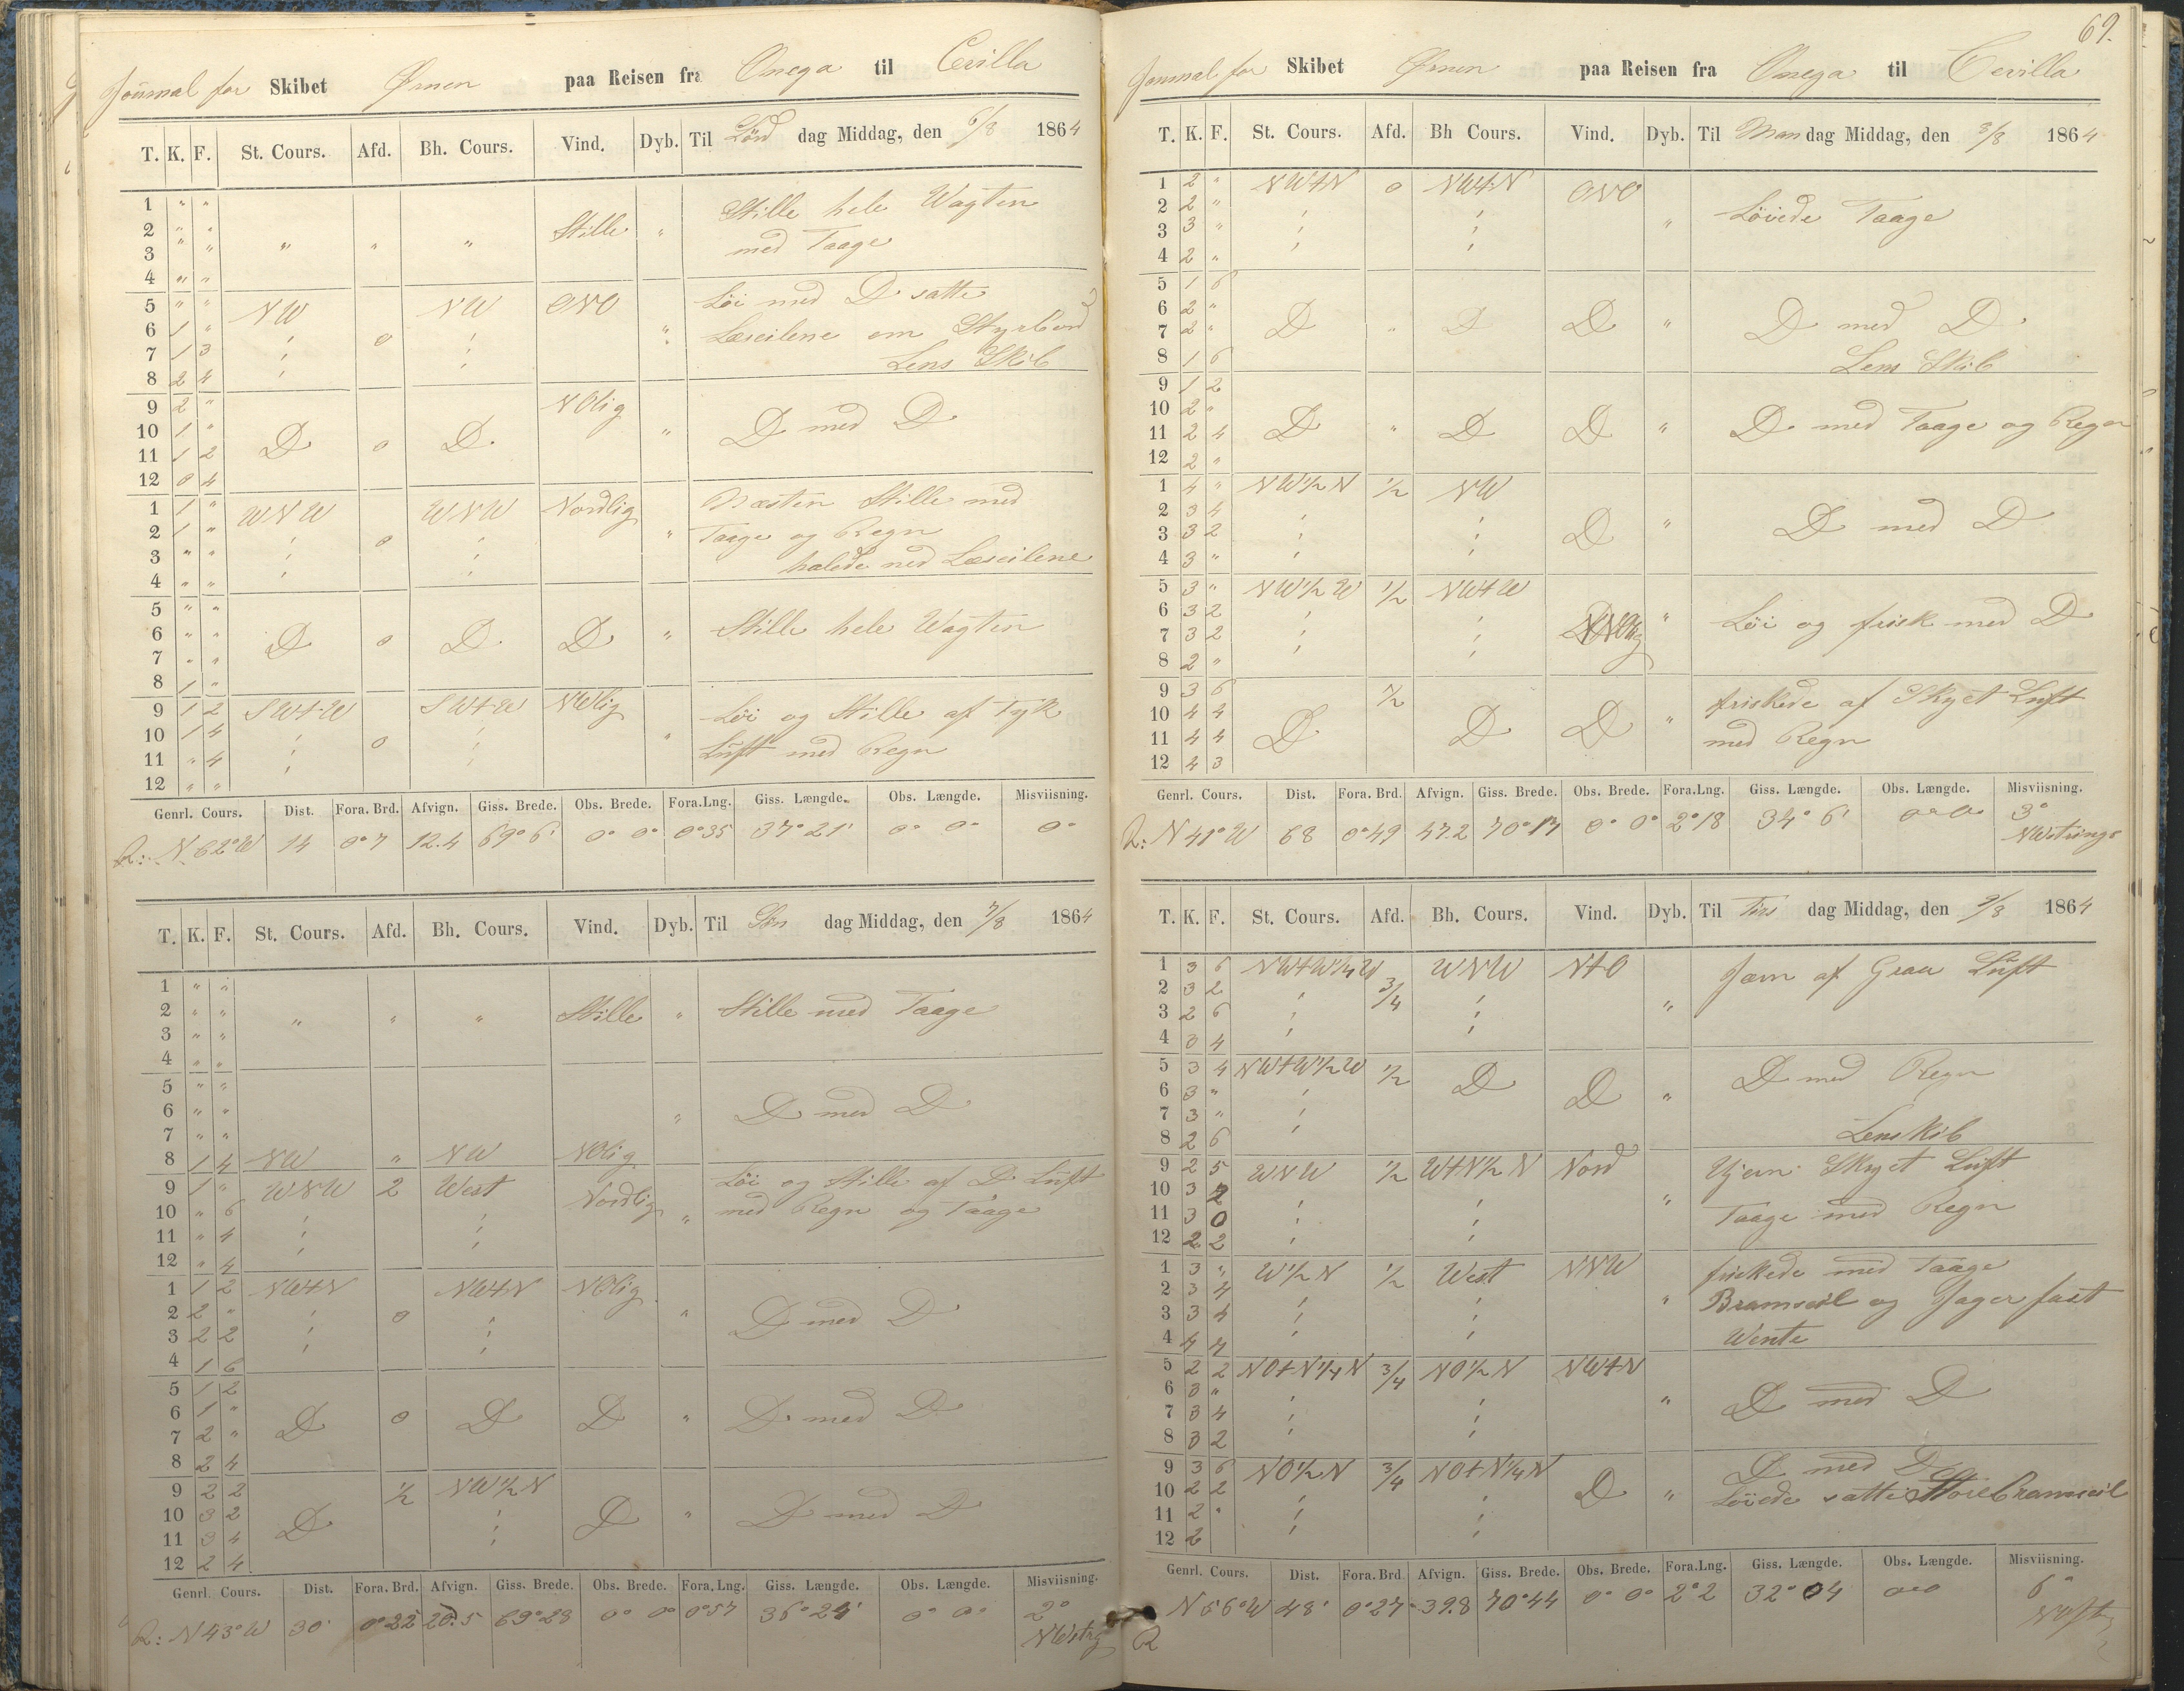 Journal for Skibet Ørnen paa Reisen fra Onega til Cevilla
T. K. F. St. Cours. Afd. Bh. Cours. Vind. Dyb. Til Lørd dag Middag, den 6/8 1864
1 " " Stille hele Wagten
2 " " Stille "
3 " " " " " med Taage
4 " "
5 " " NW NW ONO Löi med D satte
6 1 " ; 0 ; " Læseilene om Styrbord
7 1 3 ; ; Lens Skib
8 2 4 ;
9 2 " NOlig
10 1 " D 0 D " D med D
11 1 2
12 0 4
1 1 " WNW WNW Nordlig Næsten Stille med
2 1 " ; 0 ; " Taage og Regn
3 " " ; ; halede ned Læseilene
4 " " ;
5 " "
6 " " D 0 D D " Stille hele Wagten
7 " "
8 1 "
9 1 2 SW+W SW+W NWlig Löi og Stille af Tyk
10 1 4 ; 0 ; " Luft med Regn
11 " 4 ; ;
12 " "
Genrl. Cours. Dist. Fora. Brd. Afvign. Giss. Brede. Obs. Brede. Fora.Lng. Giss. Længde. Obs. Længde. Misviisning.
R: N 62° W 14 0°7 12.4 69°6' 0° 0° 0°35 37°21' 0° 0° 0°
T. K. F. St. Cours. Afd. Bh. Cours. Vind. Dyb. Til Søn dag Middag, den 7/8 1864
1 " "
2 " " " " " Stille " Stille med Taage
3 " "
4 " "
5 " "
6 " " " D med D
7 " "
8 1 4 NW " NW NOlig
9 1 " WNW 2 West Nordlig Löi og Stille af D Luft
10 " 6 ; ; " med Regn og Taage
11 " 4 ; ;
12 " 4
1 1 2 NW+N NW+N NOlig
2 2 " ; 0 ; " D med D
3 2 2 ; ;
4 1 6
5 1 2
6 1 " D 0 D D " D med D
7 2 "
8 2 4
9 2 2 1/2 NW1/2N
10 3 2 D ; D " D med D
11 3 4 ;
12 2 4
Genrl. Cours. Dist. Fora. Brd. Afvign. Giss. Brede. Obs. Brede. Fora.Lng. Giss. Længde. Obs. Længde. Misviisning.
R: N 43° W 30' 0°22 20.5 69°28 0° 0° 0°57 36°24' 0° 0° 2°
NWstrg
69.
Journal for Skibet Ørnen paa Reisen fra Onega til Cevilla
T. K. F. St. Cours. Afd. Bh Cours. Vind. Dyb. Til Man dag Middag, den 8/8 1864
1 2 " NW+N 0 NW+N ONO
2 2 " ; ; " Löiede Taage
3 3 " ; ;
4 2 "
5 1 6
6 2 " D " D D " D med D
7 2 "
8 1 6 Lens Skib
9 1 2
10 2 " D " D D " D med Taage og Regn
11 2 4
12 2 "
1 4 " NW1/2N 1/2 NW
2 3 4 ; ; D " D med D
3 3 2 ; ;
4 3 "
5 3 " NW1/2W 1/2 NW+W
6 3 2 ; ; " Löi og frisk med D
7 3 2 ; ;
8 2 "
9 3 6 1/2 friskede af Skyet Luft
10 4 4 D D D " med Regn
11 4 4
12 4 3
Genrl. Cours. Dist. Fora. Brd. Afvign. Giss. Brede. Obs. Brede. Fora.Lng. Giss. Længde. Obs. Længde. Misviisning.
R: N 41° W 68 0°49 47.2 70°17 0° 0° 2°18 34°6' 0° 0° 3°
NWstrings
T. K. F. St. Cours. Afd. Bh. Cours. Vind. Dyb. Til Tirs dag Middag, den 9/8 1864
1 3 6 NW+W1/4W 3/4 WNW N+O Jævn af Graa Luft
2 3 2 ; ; "
3 2 6 ; ;
4 3 4
5 3 4 NW+W1/2W 1/2 D D " D med Regn
6 3 " ;
7 3 " ;
8 2 6 Lens kib
9 2 5 WNW 1/2 W+N1/2N Nord Skyet Luft
10 3 2 ; ; " Taage med Regn
11 3 0 ; ;
12 2 2 ; ;
1 3 " W1/2N 1/2 West NNW friskede med Taage
2 3 4 ; ; " Bramseil og Jager fast
3 3 4 ; ; Wente
4 4 4
5 2 2 NO+N1/4N 3/4 NO1/2N NW+N
6 3 " ; ; " D med D
7 3 4 ; ;
8 3 2 ; ;
9 3 6 NO1/2N 3/4 NO+N1/4N D med D
10 2 2 ; ; D " Löiede satte Storebramseil
11 2 " ; ;
12 2
Genrl. Cours. Dist. Fora. Brd. Afvign. Giss. Brede. Obs. Brede. Fora.Lng. Giss. Længde. Obs. Længde. Misviisning.
R N 56° W 48' 0°27 39.8 70°44 0° 0° 2°2 32°04 0°0 6°